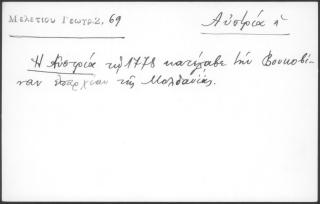 Μελετίου Γεωγρ. Ζ, 69
Αὐστρία ἡ
Ἡ Αὐστρία τῷ 1778 κατέλαβε τήν Βουκοβί-
ναν ἐπαρχίαν τῆς Μολδαυίας.